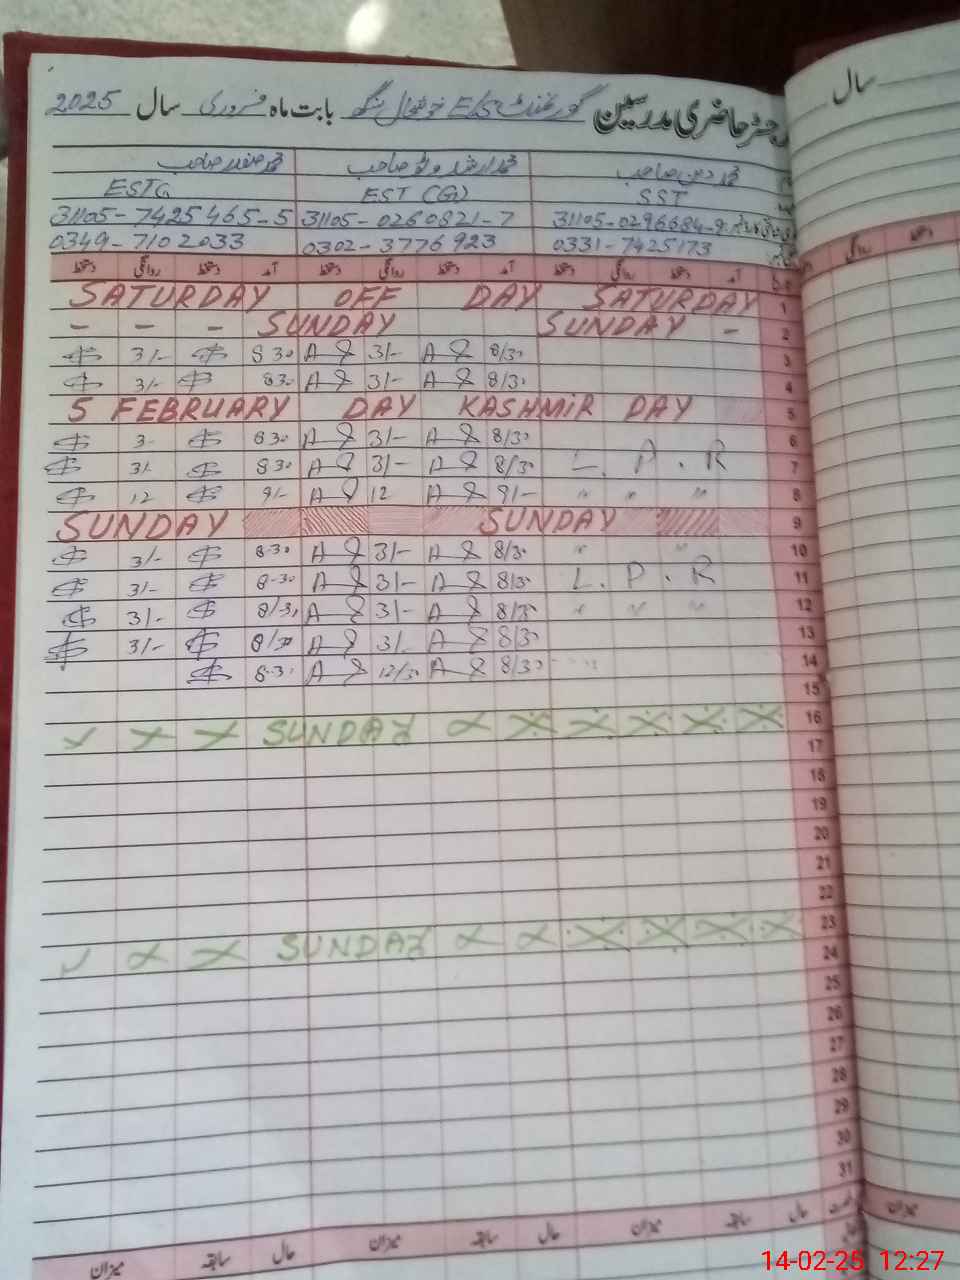 رجسٹر حاضری مدرسین گورنمنٹ E/S خوشحال سنگھ بابت ماہ فروری سال 2025
سال
محمد صفدر صاحب
ESTG SST
EST (G)
31105-7425465-5 31105-0260821-7 31105-0296684-9
0349-7102033 0302-3776923 0331-7425173
آمد دستخط روانگی دستخط آمد دستخط روانگی دستخط آمد دستخط روانگی دستخط
SATURDAY OFF DAY SATURDAY 1
- - - SUNDAY SUNDAY - 2
3/- 830 A 3/- A 8/30 3
3/- 830 A 3/- A 8/30 4
5 FEBRUARY DAY KASHMIR DAY 5
3- 830 A 3/- A 8/30 6
3/- 830 A 3/- A 8/30 L.P.R 7
12 9/- A 12 A 9/- " " " 8
SUNDAY SUNDAY 9
3/- 8-30 A 3/- A 8/30 " " 10
3/- 8-30 A 3/- A 8/30 L.P.R 11
3/- 8/30 A 3/- A 8/30 " " " 12
3/- 8/30 A 3/- A 8/30 13
8-30 A 12/30 A 8/30 14
15
SUNDAY 16
17
18
19
20
21
22
SUNDAY 23
24
25
26
27
28
29
30
31
میزان سابقہ حال میزان سابقہ حال میزان سابقہ حال
میزان
14-02-25 12:27